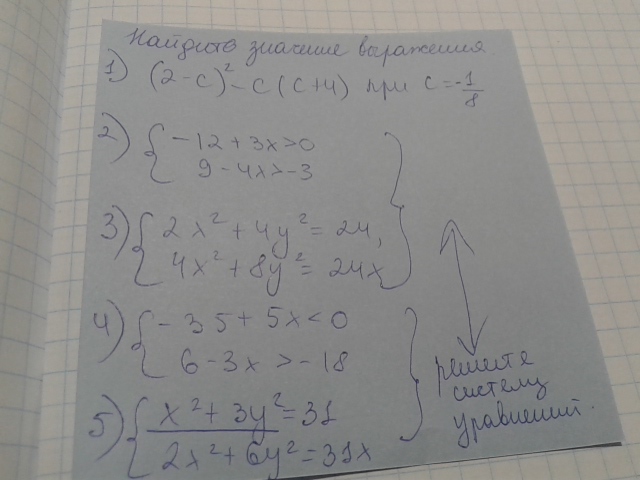 Найдите значение выражения.
1) (2-c)² - c(c+4) при c = -1/8
2) { -12 + 3x > 0
9 - 4x > -3
3) { 2x² + 4y² = 24,
4x² + 8y² = 24x
4) { -35 + 5x < 0
6 - 3x > -18
5) { x² + 3y² = 31
2x² + 6y² = 31x
решите
систему
уравнений.